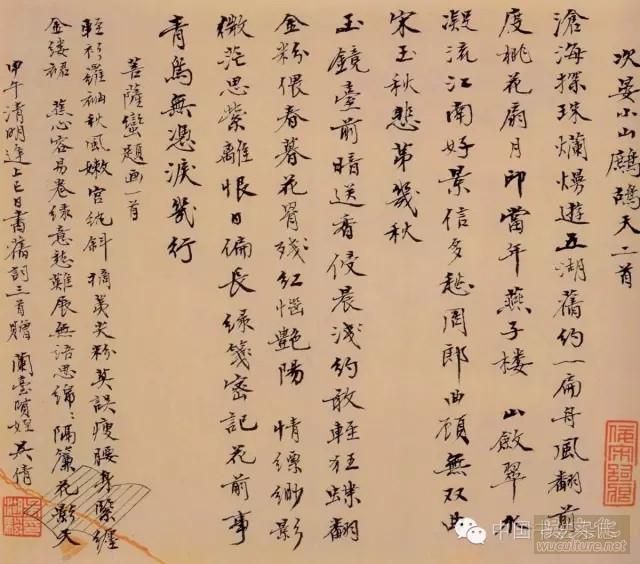 次晏小山鷓鴣天二首
滄海探珠爛熳遊五湖舊約一扁舟風翻前
度桃花扇月印當年燕子樓 山斂翠水
凝流江南好景信多愁周郎曲顧無双曲
宋玉秋悲第幾秋
玉鏡臺前暗送香侵晨淺約敢輕狂蝶翻
金粉偎春暮花骨殘紅惱艷陽 情縹緲影
微茫思縈離恨日偏長綠箋密記花前事
青鳥無憑淚幾行
菩薩蠻題画一首
輕衫羅袖秋風嫩宮 斜 粉莫誤瘦腰身緊纏
金縷裙 蕉心容易卷綠意愁難展無語思綿〻隔簾花影天
甲午清明逢上巳日書舊詞三首贈 蘭臺賢姪 吳倩
中国书法
www.wuculture.net